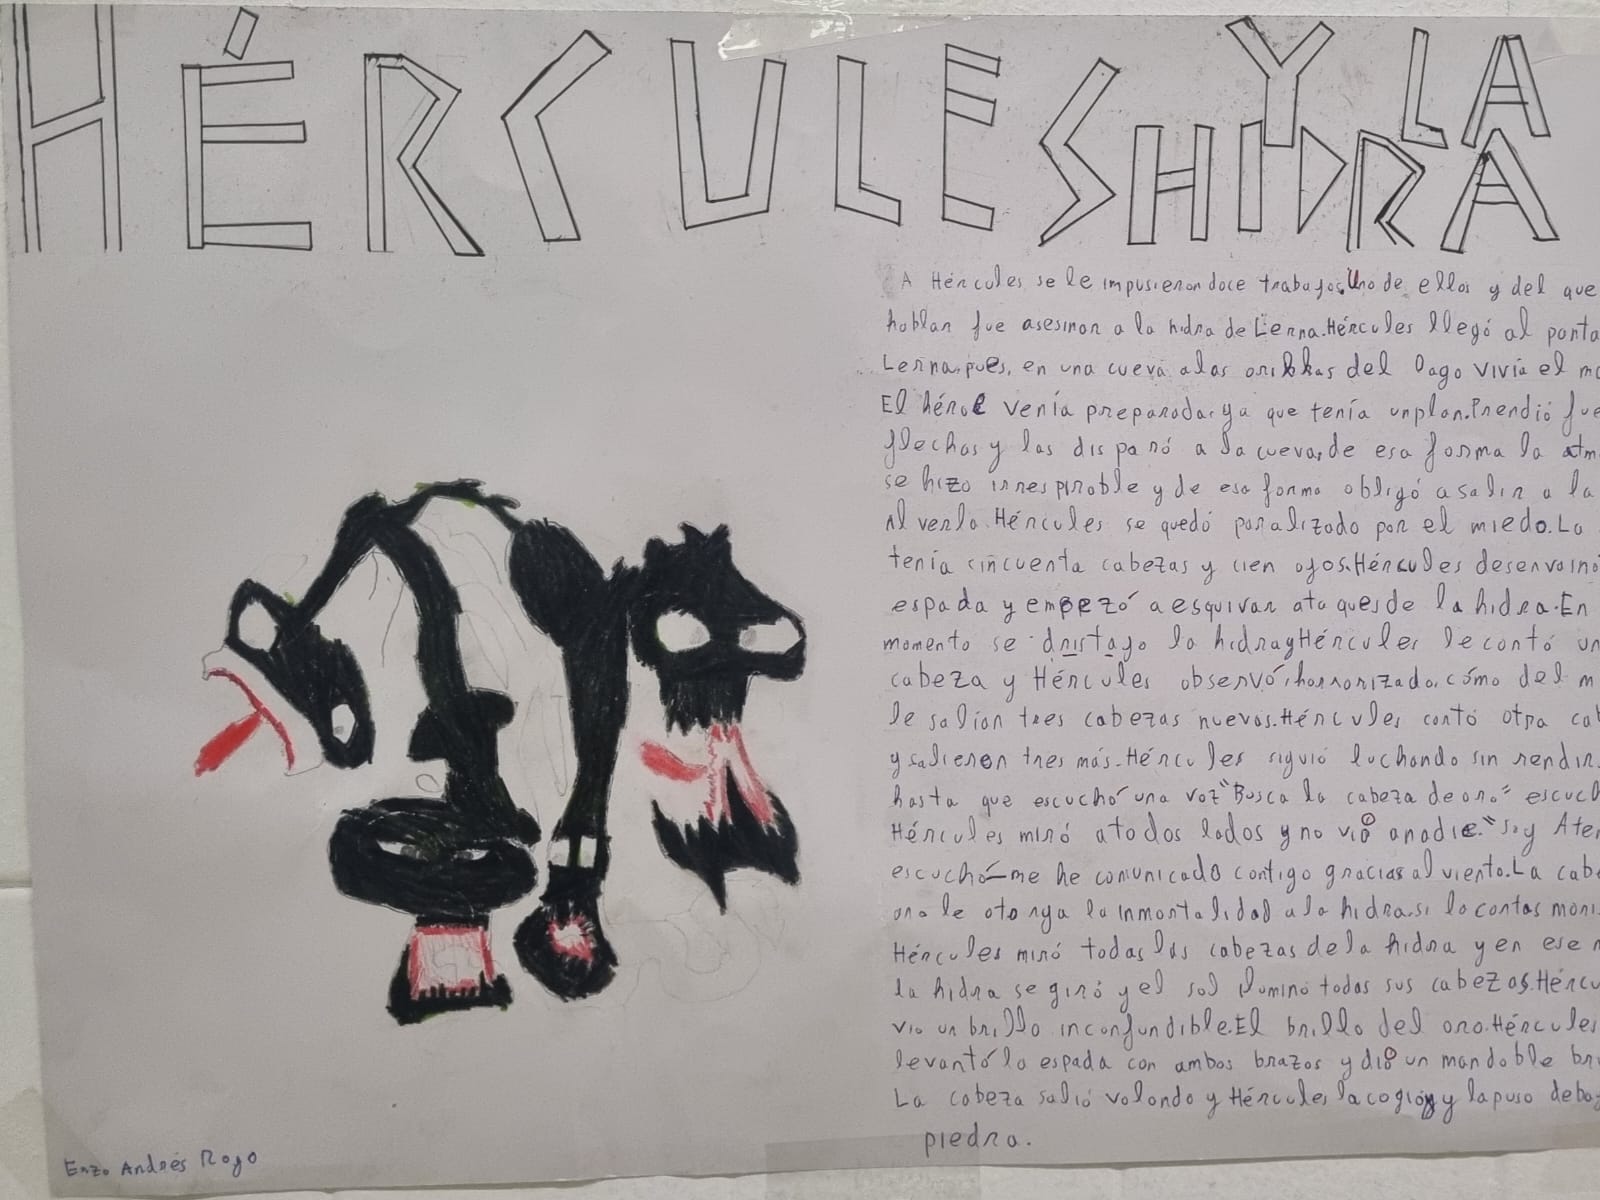 HÉRCULES Y LA
HIDRA
A Hércules se le impusieron doce trabajos. Uno de ellos y del que
hablan fue asesinar a la hidra de Lerna. Hércules llegó al
Lerna, pues, en una cueva a las orillas del lago vivía el
El héroe venía preparado, ya que tenía un plan. Prendió
flechas y las disparó a la cueva, de esa forma la
se hizo irrespirable y de esa forma obligó a salir a la
Al verla Hércules se quedó paralizado por el miedo. La
tenía cincuenta cabezas y cien ojos. Hércules desenvainó
espada y empezó a esquivar ataques de la hidra. En
momento se dristajo la hidra y Hércules le cortó
cabeza y Hércules observó, horrorizado, cómo del
le salían tres cabezas nuevas. Hércules cortó otra
y salieron tres más. Hércules siguió luchando sin
hasta que escuchó una voz "Busca la cabeza de oro"
Hércules miró a todos lados y no vio a nadie. "Soy
escuchó-me he comunicado contigo gracias al viento. La
oro le otorga la inmortalidad a la hidra, si la cortas
Hércules miró todas las cabezas de la hidra y en ese
la hidra se giró y el sol iluminó todas sus cabezas.
vio un brillo inconfundible. El brillo del oro. Hércules
levantó la espada con ambos brazos y dio un mandoble
La cabeza salió volando y Hércules la cogió y la puso
piedra.
Enzo Andrés Royo